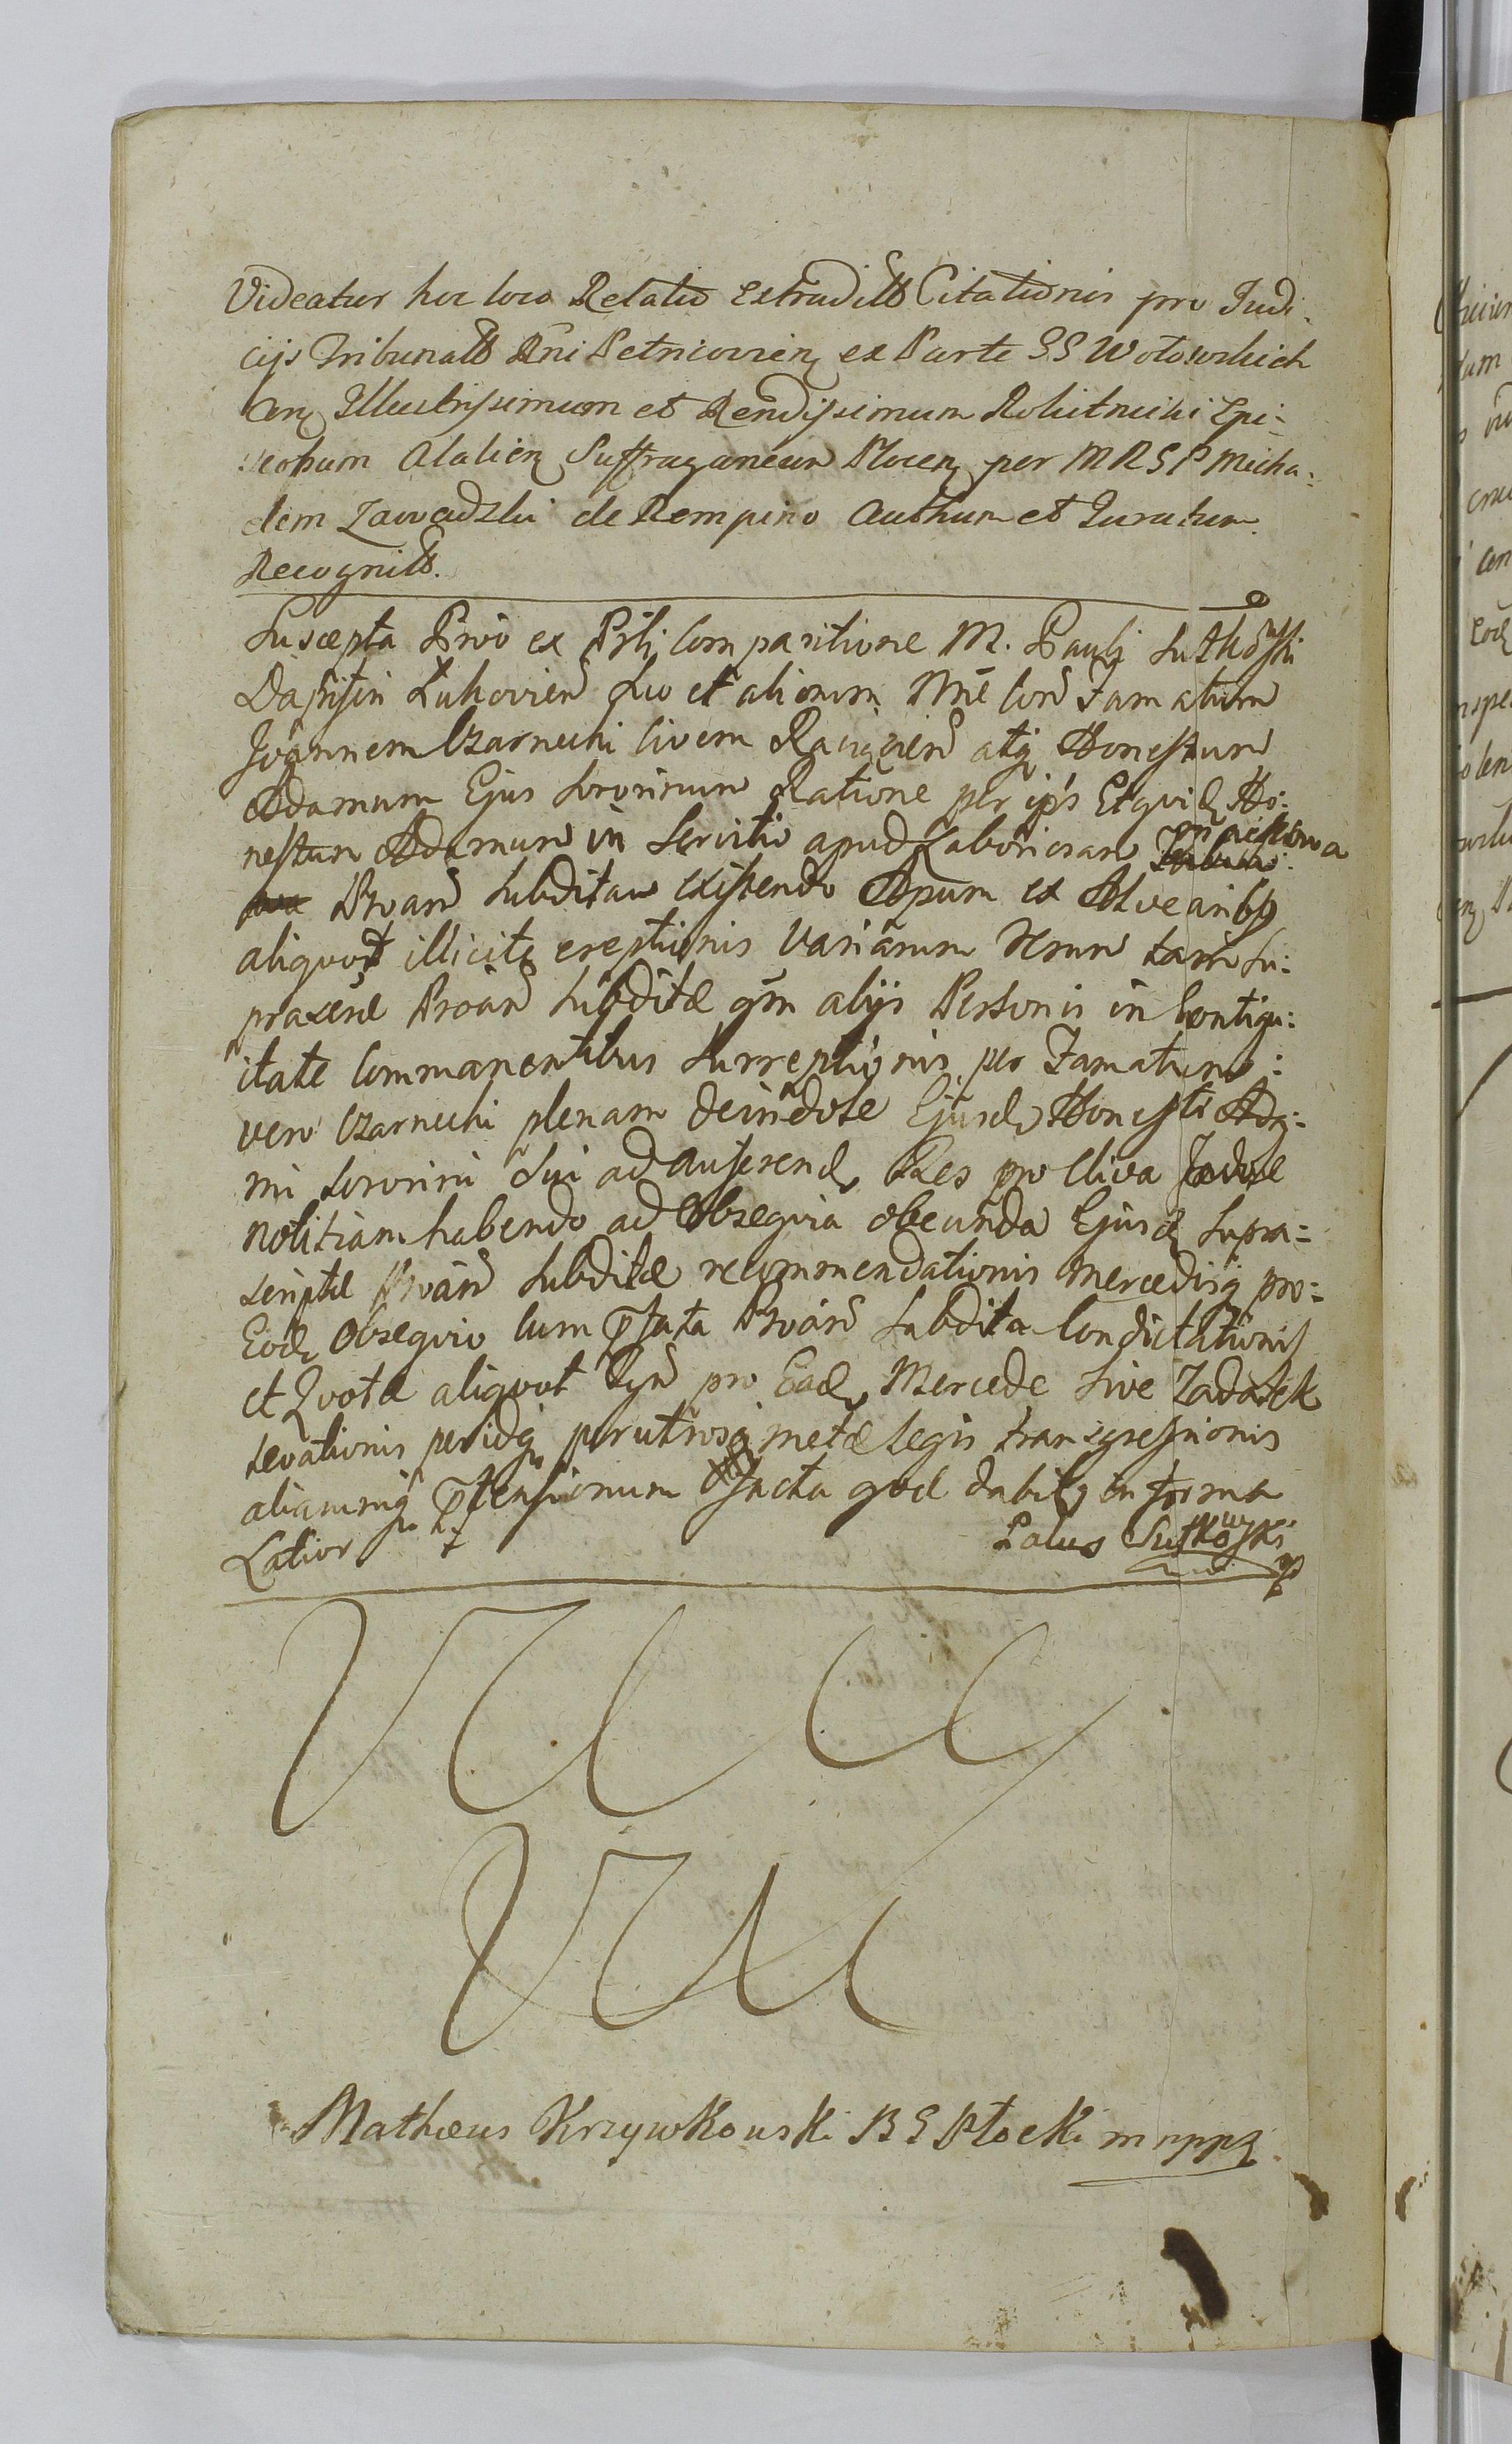 Videatur hoc loco Relatio Extradittt Citationis pro Judi-
cijs Tribunalls Rni Petricovien ex Parte SS Wołowskich
Con Illustrissimum et Rendissimum Rokitnicki Epi-
scopum Alalien Suffraganeum Plocen per MRSP Micha-
elem Zawadzki de Rempino Authum et Juratum
Recognitt.
Suscepta Prio ex Ptli Comparitione M. Pauli Sutkowski
Daprisiri Łukovien Suo et aliorum Nme Con Famatum
Joannem Czarnecki Civem Raciązien atq Honestum
Adamum Ejus Sororinum Ratione per ips Etquid Ho-
nestum Adamum in Servitio apud Laboriosam
Proan Subditam existendo Apum ex Alvearibq
aliquot illicite ereptionis Variarum Rerum tam Su-
praxene Proan Subditæ qm alijs Personis in Contigu-
itate Commanentibus Surreptionis per Famatum
vero Czarnecki plenam de indole Ejusd Honesti Ada-
mi Sororini Sui ad auferend Res pro Cliva
notitiam habendo ad Obsequia obeunda Ejusd Supra-
scriptæ Proan Subditæ recommendationis Mercedisq pro
Eod Obsequio Cum pfata Proan Subdita Condictationis
et Quotæ aliquot pro Ead Mercede Sive Zadatek
levationis peridq perutrosq metæ legis transgressionis
aliarumq ptensionum facta qod dabitq in forma
Latior
Palus Sutkowski
mp
Mathæus Krzywkowski B G Płocki mppa